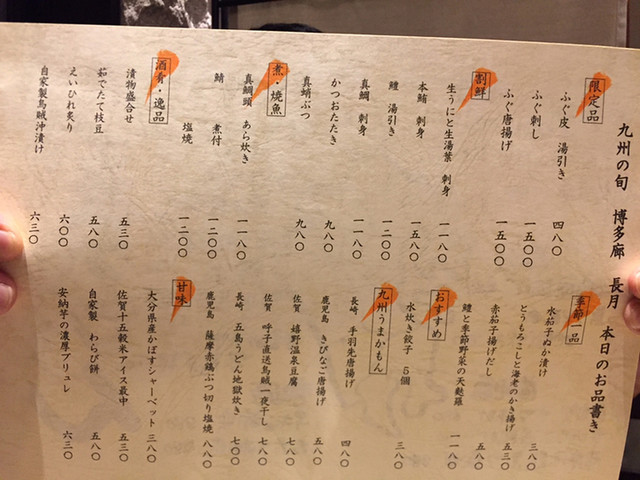 九州の旬 博多廊 長月 本日のお品書き
限定品
ふぐ皮 湯引き 四八〇
ふぐ刺し 一五〇〇
ふぐ唐揚げ 一五〇〇
割鮮
生うにと生湯葉 刺身 一一八〇
本鮪 刺身 一五八〇
鱧 湯引き 一二〇〇
真鯛 刺身 一一八〇
かつおたたき 九八〇
真蛸ぶつ 九八〇
煮・焼魚
真鯛頭 あら炊き 一一八〇
煮付 一二〇〇
塩焼 一二〇〇
酒肴・逸品
漬物盛合せ 五三〇
茹でたて枝豆 五八〇
えいひれ炙り 六〇〇
自家製烏賊沖漬け 六三〇
季節一品
水茄子ぬか漬け 三八〇
とうもろこしと海老のかき揚げ 五三〇
赤茄子揚げだし 五八〇
鱧と季節野菜の天麩羅 一一八〇
おすすめ
水炊き餃子 5個 三八〇
九州うまかもん
長崎 手羽先唐揚げ 四八〇
鹿児島 きびなご唐揚げ 五八〇
佐賀 嬉野温泉豆腐 七八〇
佐賀 呼子直送烏賊一夜干し 七八〇
長崎 五島うどん地獄炊き 七〇〇
鹿児島 薩摩赤鶏ぶつ切り塩焼 八八〇
甘味
大分県産かぼすシャーベット 三八〇
佐賀十五穀米アイス最中 五三〇
自家製 わらび餅 五八〇
安納芋の濃厚ブリュレ 六三〇